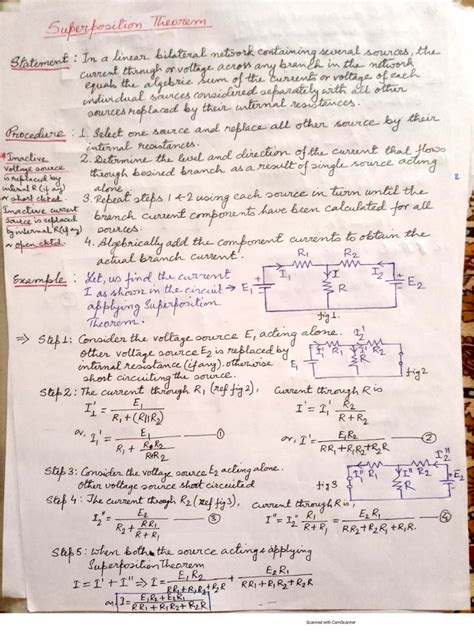 Superposition Theorem
Statement : In a linear bilateral network containing several sources, the
current through or voltage across any branch in the network
equals the algebric sum of the currents or voltage of each
individual sources considered separately with all other
sources replaced by their internal resistances.
Procedure : 1. Select one source and replace all other source by their
internal resistances.
* Inactive
voltage source
is replaced by
internal R (if any)
or short ckted.
Inactive current
source is replaced
by internal R (if any)
or open ckted.
2. Determine the level and direction of the current that flows
through desired branch as a result of single source acting
alone
3. Repeat steps 1 & 2 using each source in turn until the
branch current components have been calculated for all
sources.
4. Algebrically add the component currents to obtain the
actual branch current.
2
Example : Let, us find the current
I as shown in the circuit →
applying Superposition
Theorem.
R1 R2
I1 I I2
E1 R E2
fig 1.
⇒ Step 1: Consider the voltage source E1 acting alone.
other voltage source E2 is replaced by
internal resistance (if any). otherwise
short circuiting the source.
I1' R1 I' R2 I2'
E1 R
fig 2
Step 2: The current through R1 (ref fig 2),
I1' = E1 / (R1 + (R||R2))
or, I1' = E1 / (R1 + RR2/(R+R2)) — ①
Current through R is
I' = I1' R2 / (R + R2)
or, I' = E1R2 / (RR1+R1R2+R2R) — ②
Step 3: Consider the voltage source E2 acting alone.
Other voltage source short circuited
fig 3
I1'' R1 I'' R2 I2''
R E2
Step 4: The current through R2 (ref fig 3),
I2'' = E2 / (R2 + RR1/(R+R1)) — ③
current through R is,
I'' = I2'' R1 / (R + R1) = E2R1 / (RR2+R2R1+R1R. — ④
Step 5: When both the source acting & applying
Superposition Theorem
I = I' + I'' ⇒ I = E1R2 / (RR1+R1R2+R2R) + E2R1 / (RR1+R1R2+R2R)
or, I = (E1R2+E2R1) / (RR1 + R1R2 + R2R)
Scanned with CamScanner